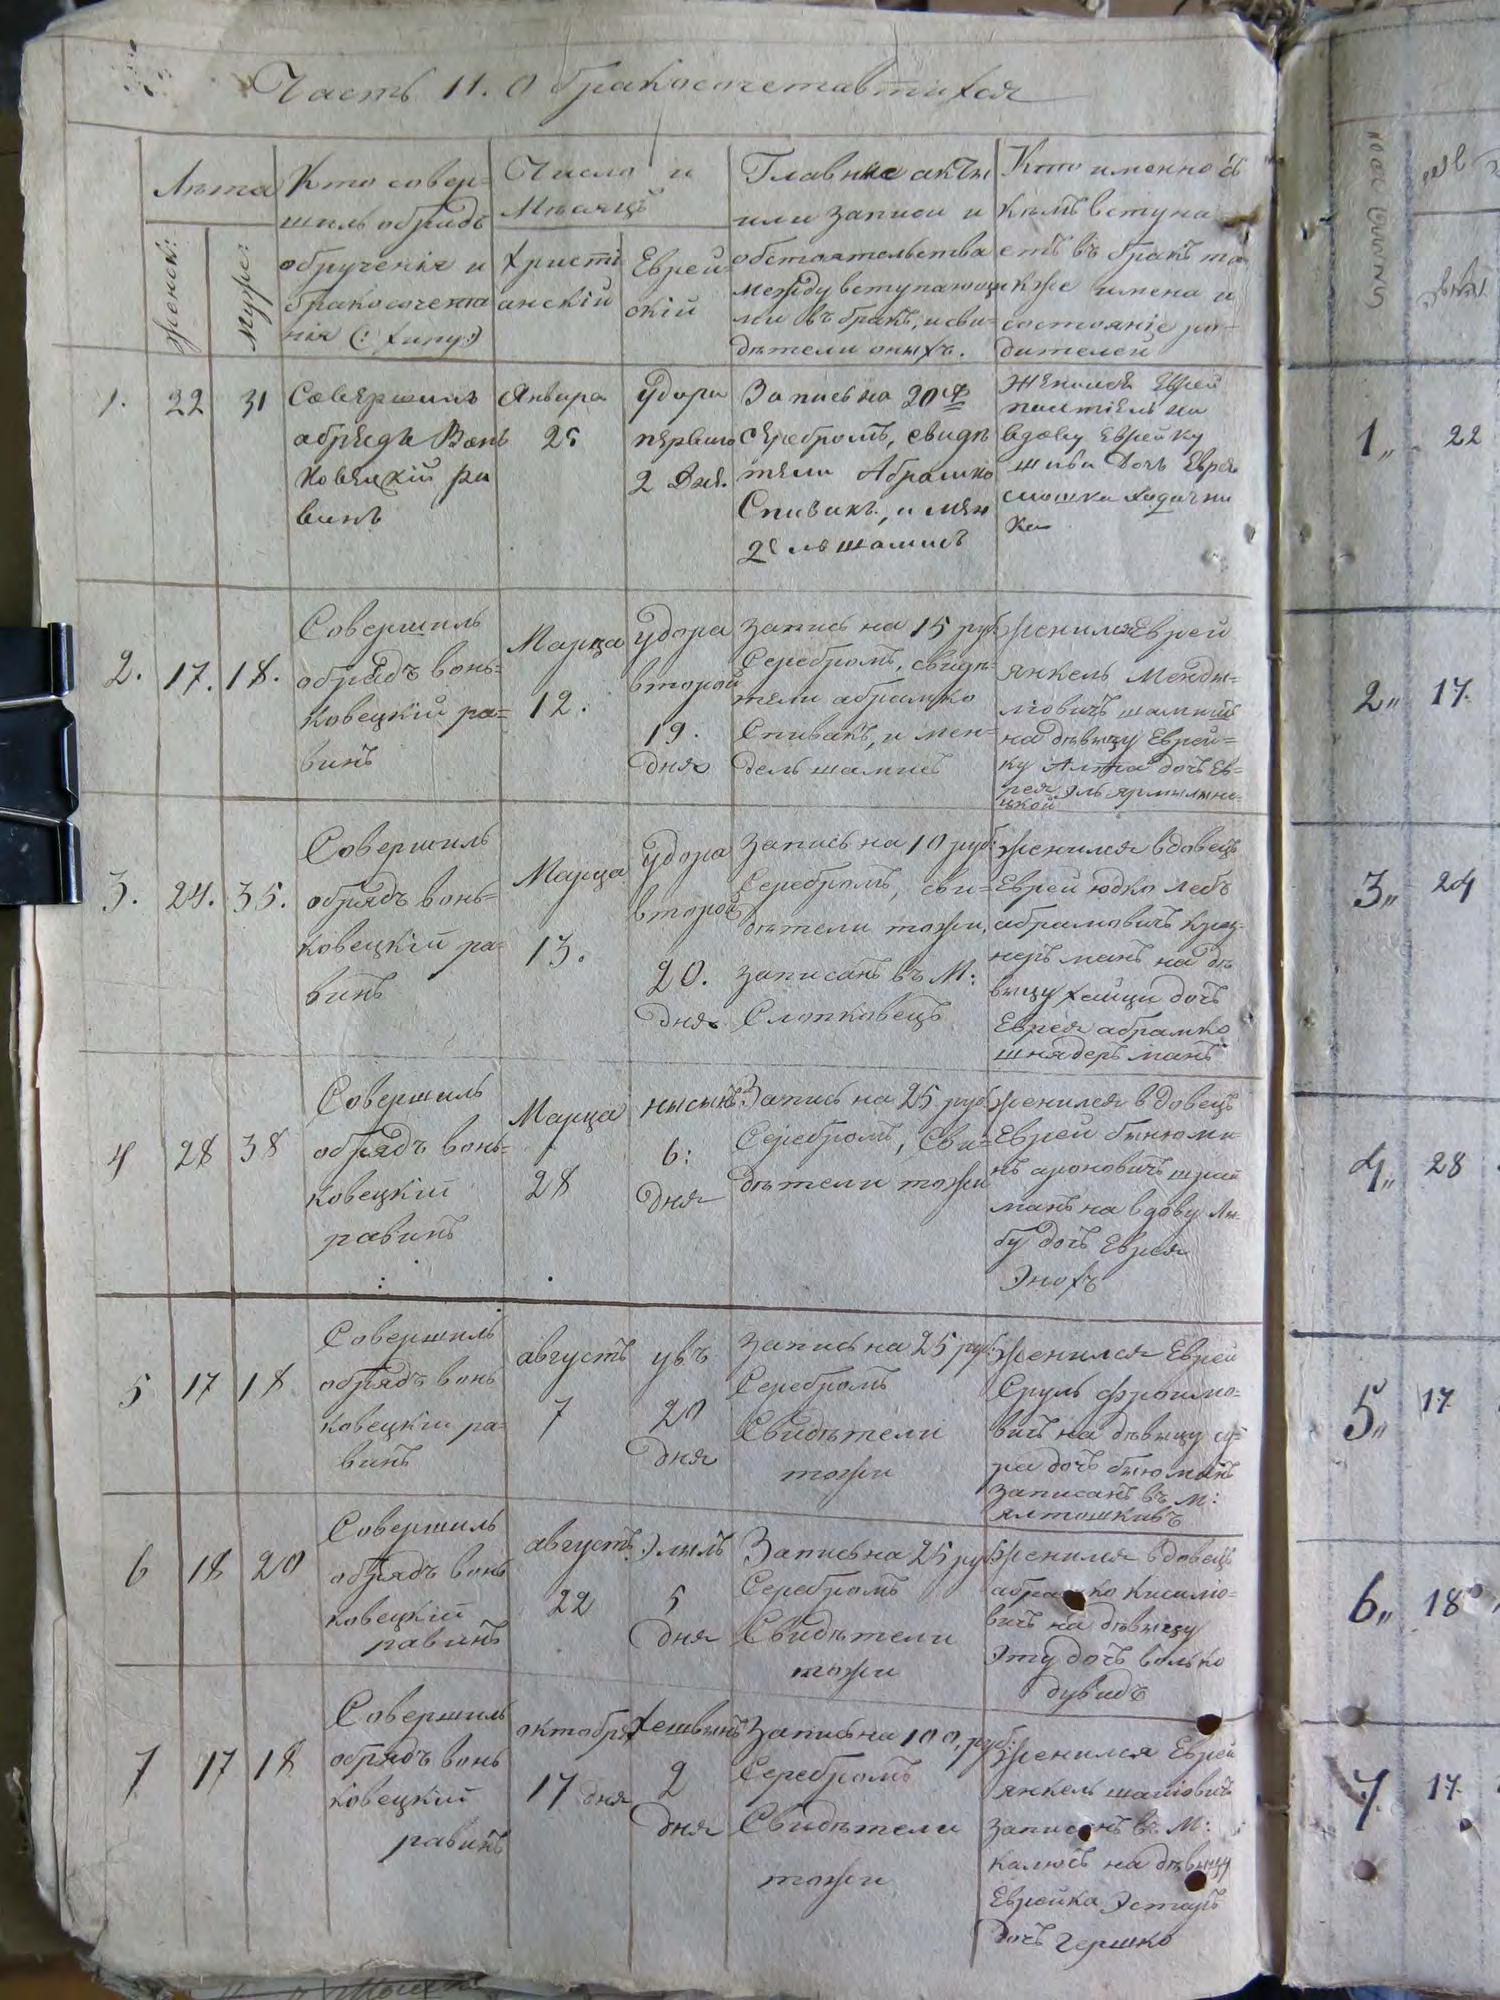 Часть 11. О бракосочетавшихся
Лѣта
Женск:
Мужес
Кто совер=
шилъ обрядъ
обрученія и
бракосочета
нія (: хипу:)
Число и
Мѣсяцъ
Христі
анскій
Еврей
скій
Главные акты
или записи и
обстоятельства
между вступающи
ми въ бракъ, и сви=
дѣтели оныхъ.
Кто именно съ
кѣмъ вступа
етъ въ бракъ та
кже имена и
состояніе ро=
дителей
1. 22 31
Совершилъ
обрядъ Вонь
ковецкій ра
винъ
Января
25
Удора
перваго
2 дня.
Запись на 20
серебромъ, свидѣ
тели Абрамко
Спивакъ, и Мен
дель шамисъ
Женился Еврей
на
вдову Еврейку
дочь Еврея
Мошка
2. 17. 18.
Совершилъ
обрядъ вонь=
ковецкій ра=
винъ
Марца
12.
Удора
второй
19.
дня
Запись на 15 руб
Серебромъ, свидѣ=
тели абрамко
Спивакъ, и мен=
дель шамисъ
Женился Еврей
янкель Менды=
лювичъ
на дѣвицу Еврей=
ку дочь Ев=
рея
3. 24. 35.
Совершилъ
обрядъ вонь=
ковецкій ра=
винъ
Марца
13.
Удора
второй
20.
дня
Запись на 10 руб:
Серебромъ, сви=
дѣтели тожи,
записанъ въ М:
Слопковецъ
Женился вдовецъ
Еврей юдко лебъ
абрамовичъ
на дѣ
вицу хайци дочь
Еврея абрамко
шнядерманъ
4 28 38
Совершилъ
обрядъ вонь=
ковецкій
равинъ
Марца
28
нысынъ
6:
дня
Запись на 25 руб.
Серебромъ, Сви=
дѣтели тожи
Женился вдовецъ
Еврей бынюми=
нъ ароновичъ
на вдову Ли=
бу дочь Еврея
Энохъ
5 17 18
Совершилъ
обрядъ вонь
ковецкій ра=
винъ
августъ
7
увъ
20
дня
Запись на 25 руб:
Серебромъ
Свидѣтели
тожи
Женился Еврей
Сруль фроимо=
вичъ на дѣвицу су=
ра дочь
записанъ въ М:
ялтошкивъ
6 18 20
Совершилъ
обрядъ вонь
ковецкій
равинъ
августъ
22
Элылъ
5
дня
Запись на 25 руб
Серебромъ
Свидѣтели
тожи
Женился вдовецъ
абрамко кисилю=
вичъ на дѣвицу
Эту дочь волько
дувидъ
7 17 18
Совершилъ
обрядъ вонь
ковецкій
равинъ
октобря
17 дня
хешвынъ
2
дня
Запись на 100, руб:
Серебромъ
Свидѣтели
тожи
Женился Еврей
янкель шаюовичъ
записанъ въ М:
калюсъ на дѣвицу
Еврейка Эстеръ
дочь гершко
1,, 22
2,, 17.
3,, 24
4,, 28
5,, 17
6,, 18
7. 17.